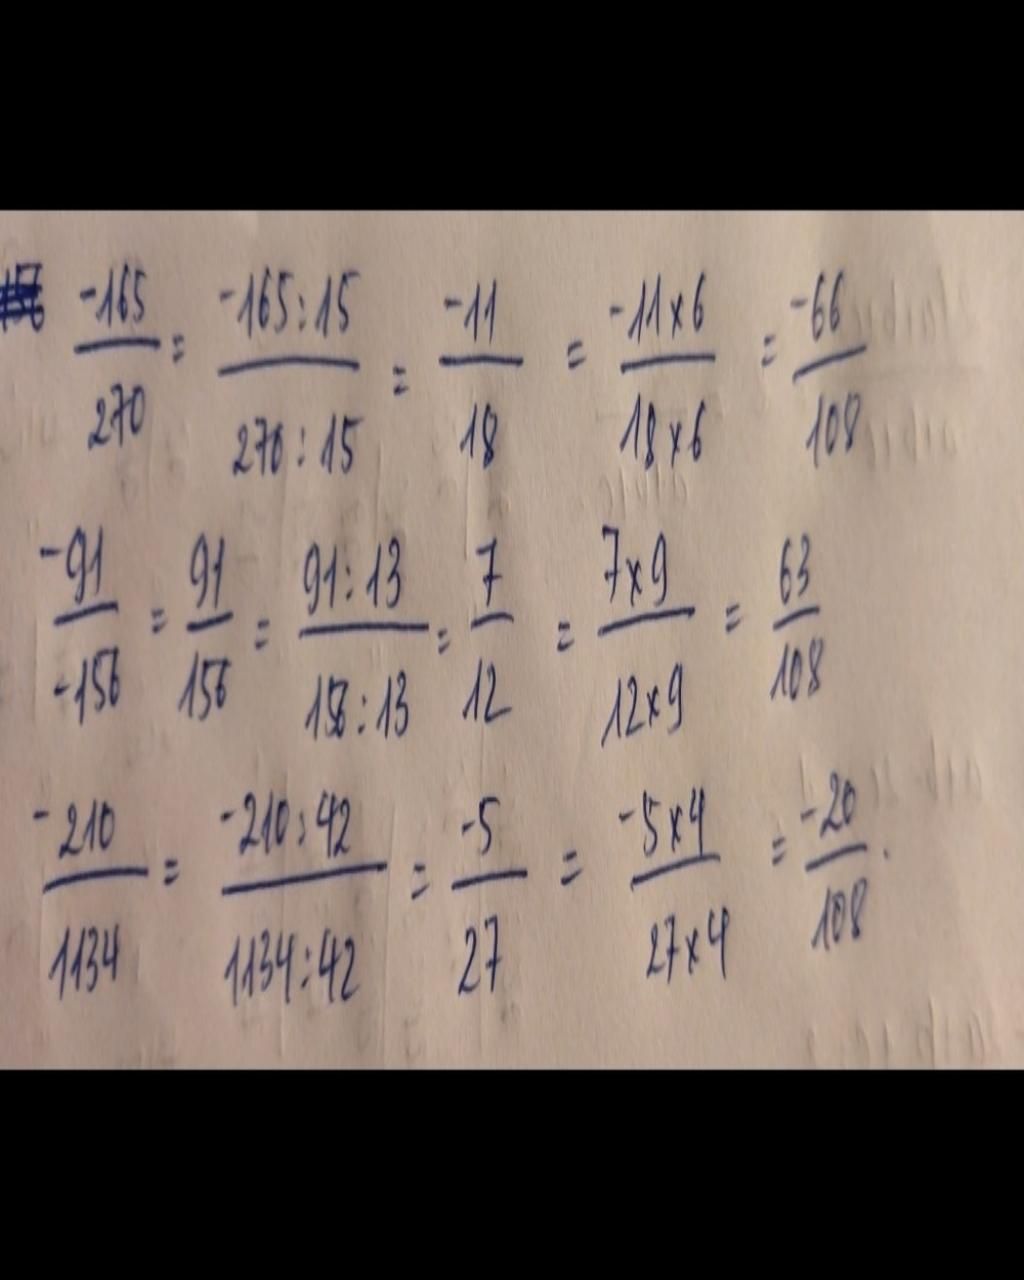 -165/270 = -165:15/270:15 = -11/18 = -11x6/18x6 = -66/108
-91/-156 = 91/156 = 91:13/156:13 = 7/12 = 7x9/12x9 = 63/108
-210/1134 = -210:42/1134:42 = -5/27 = -5x4/27x4 = -20/108.